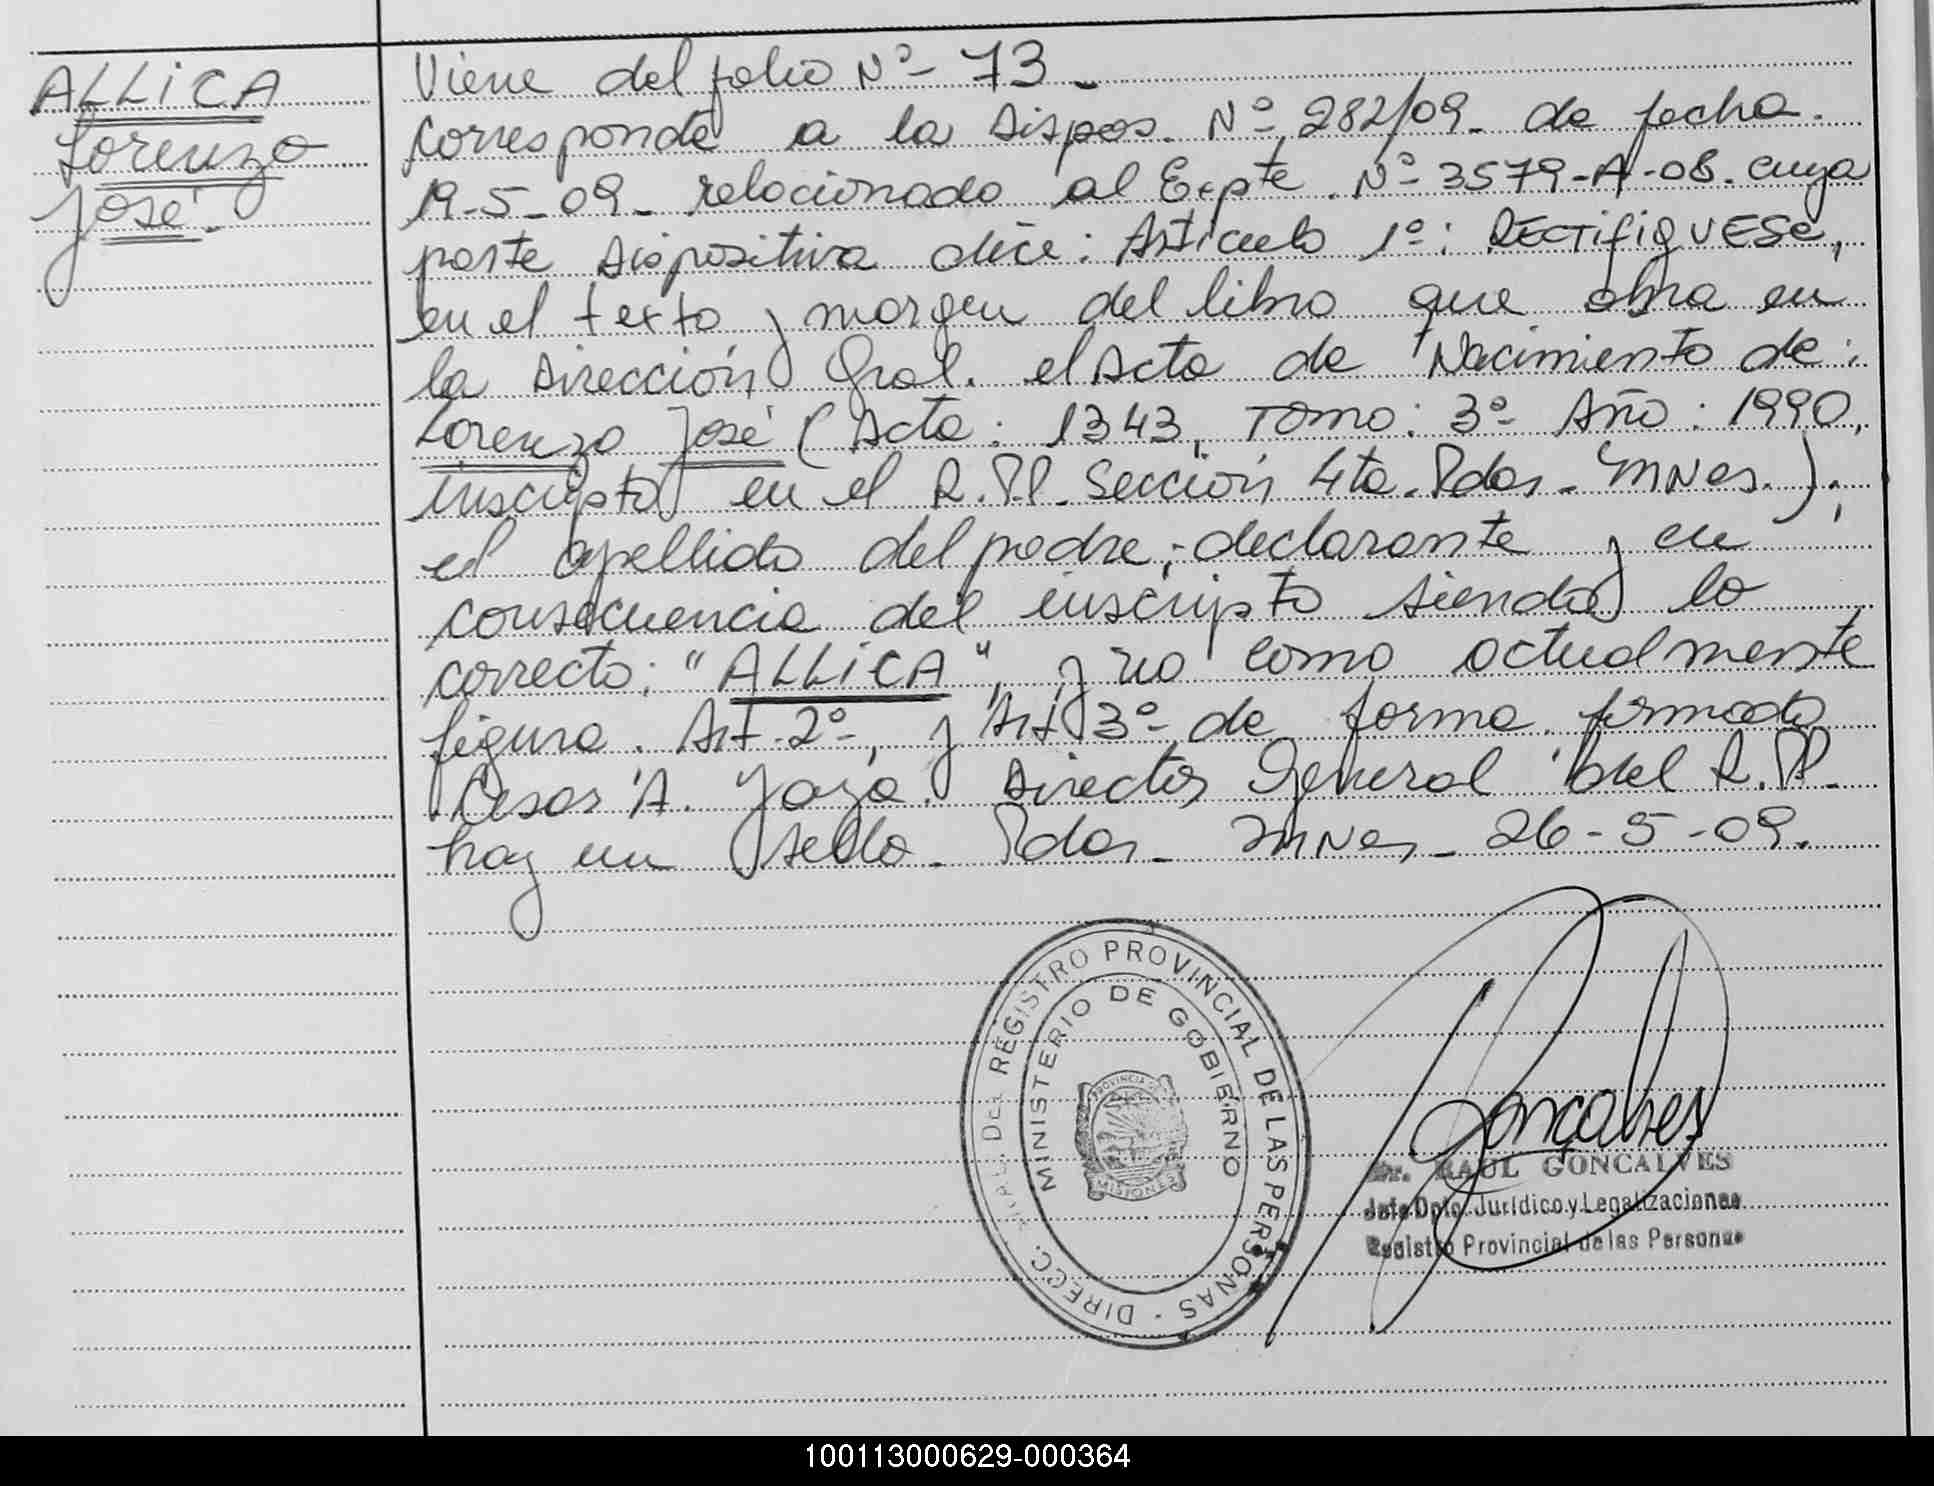 ALLICA
Lorenzo
José.-
Viene del folio Nº- 73.-
Corresponde a la Dispos. Nº 282/09- de fecha.
19-5-09- relacionado al Expte. Nº 3579-A-08. cuya
parte Dispositiva dice: Artículo 1º: RECTIFIQUESE,
en el texto y margen del libro que obra en
la Dirección Gral. el Acta de Nacimiento de:
Lorenzo José (Acta: 1343, Tomo: 3º Año: 1990,
inscripto en el R.P.P. Sección 4ta. Pdas- MNes.);
el apellido del padre, declarante y en
consecuencia del inscripto siendo lo
correcto: "ALLICA", y no como actualmente
figura. Art. 2º, y Art 3º de forma. firmado
Cesar A. Director General del R.PP.
hay un sello- Pdas- MNes- 26-5-09.
DIRECC. GRAL. DEL REGISTRO PROVINCIAL DE LAS PERSONAS -
MINISTERIO DE GOBIERNO
PROVINCIA DE
MISIONES
Goncalves
Dr. RAUL GONCALVES
Jefe Dpto. Jurídico y Legalizaciones
Registro Provincial de las Personas
100113000629-000364